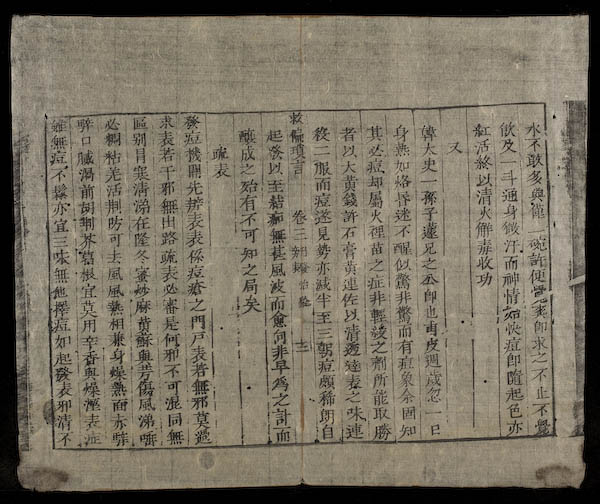 水不敢多與僅一碗許便覺爽卽求之不止不覺
飲及一斗通身微汗而神情如快痘卽隨起色亦
紅活終以清火解毒收功
又
韓大史一孫子蘧兄之公郎也甫及週歲忽一日
身熱如烙昏迷不醒似驚非驚而有痘象余固知
其必痘却屬火裡苗之症非輕發之劑所能取勝
者以大黃錢許石膏黃連佐以清透達表之味連
二服而痘遂見勢亦減半至三朝痘頗稀朗自
救偏瑣言 卷三 三
起發以至結痂無甚風波而愈何非早為之計而
釀成之殆有不可知之局矣
疏表
發痘機關先辨表表係痘瘡之門戶表若無邪莫
求表若干邪無由路疏表必審是何邪不可混同無
區別冒寒清涕在隆冬蜜炒麻黃蘇與芳傷風涕嚏
必稠粘羌活荆防可去風風熱相兼身燥熱而赤
口臟渴前胡荆芥葛根宜莫用辛香與燥溼表症
雖無痘不鬆亦宜三味無他擇痘如起發表邪清不